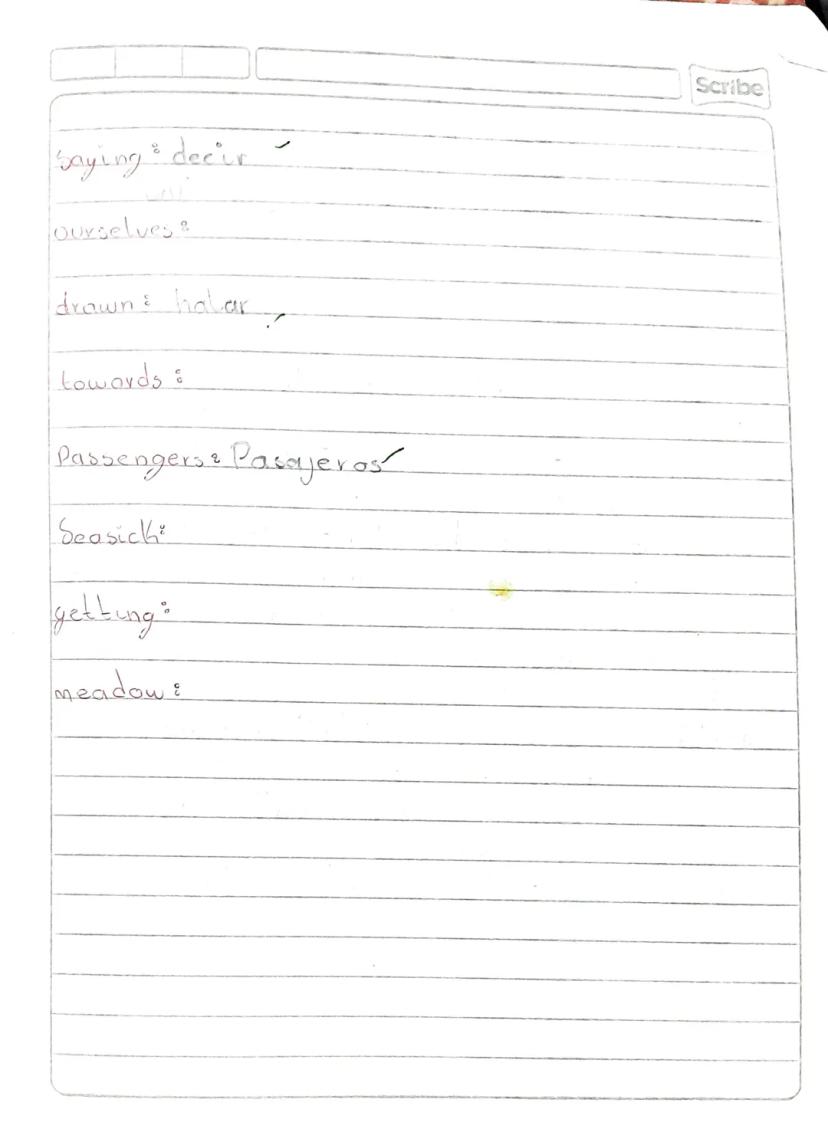 Scribe
saying: decir
ourselves:
drawn: halar
towards:
Passengers: Pasajeros
Seasick:
getting:
meadow: